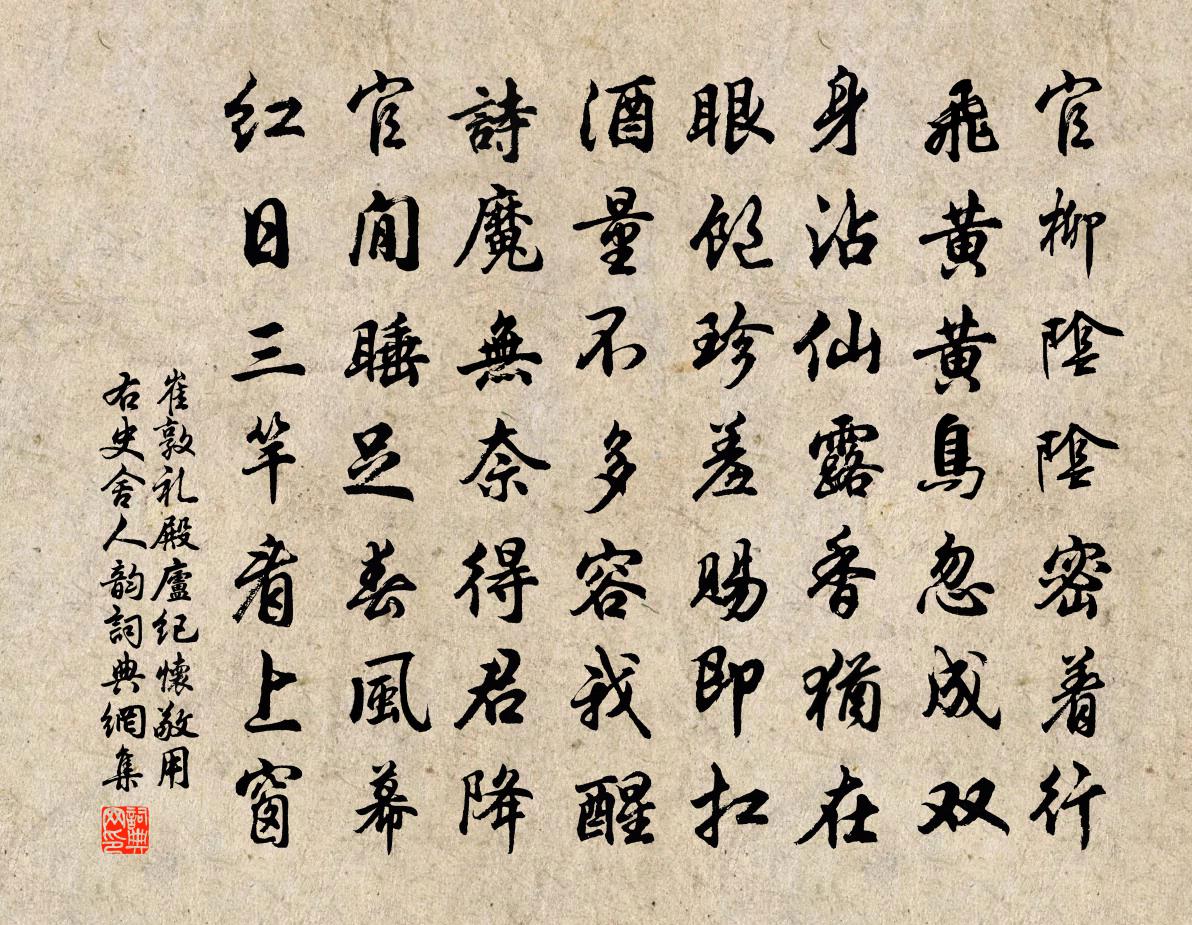 官柳陰陰密着行
飛黄黄鳥忽成双
身沾仙露香猶在
眼飽珍羞賜即扛
酒量不多容我醒
詩魔無奈得君降
官閒睡足春風幕
紅日三竿看上窗
崔敦礼殿廬紀懷敬用
右史舍人韵詞典網集
詞典网印